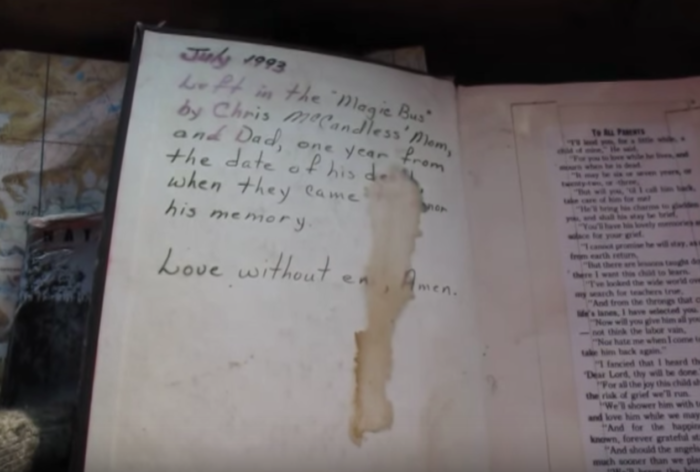 July 1993
Left in the "Magic Bus"
by Chris McCandless' Mom,
and Dad, one year from
the date of his
when they came
his memory.
Love without , Amen.
TO ALL PARENTS
"I'll lend you, for a little while, a
child of mine," He said.
"For you to love while he lives, and
mourn when he is dead.
"It may be six or seven years, or
twenty-two, or three,
"But will you, 'til I call him back,
take care of him for me?
"He'll bring his charms to gladden
you, and shall his stay be brief,
"You'll have his lovely memories
solace for your grief.
"I cannot promise he will stay,
from earth return,
"But there are lessons taught
there I want this child to learn.
"I've looked the wide world
my search for teachers true,
"And from the throngs that
life's lanes, I have selected you.
"Now will you give him all
— not think the labor vain,
"Nor hate me when I come
take him back again."
"I fancied that I heard
"Dear Lord, thy will be done.
"For all the joy this child
the risk of grief we'll run.
"We'll shower him with
and love him while we may
"And for the
known, forever grateful
"And should the
much sooner than we